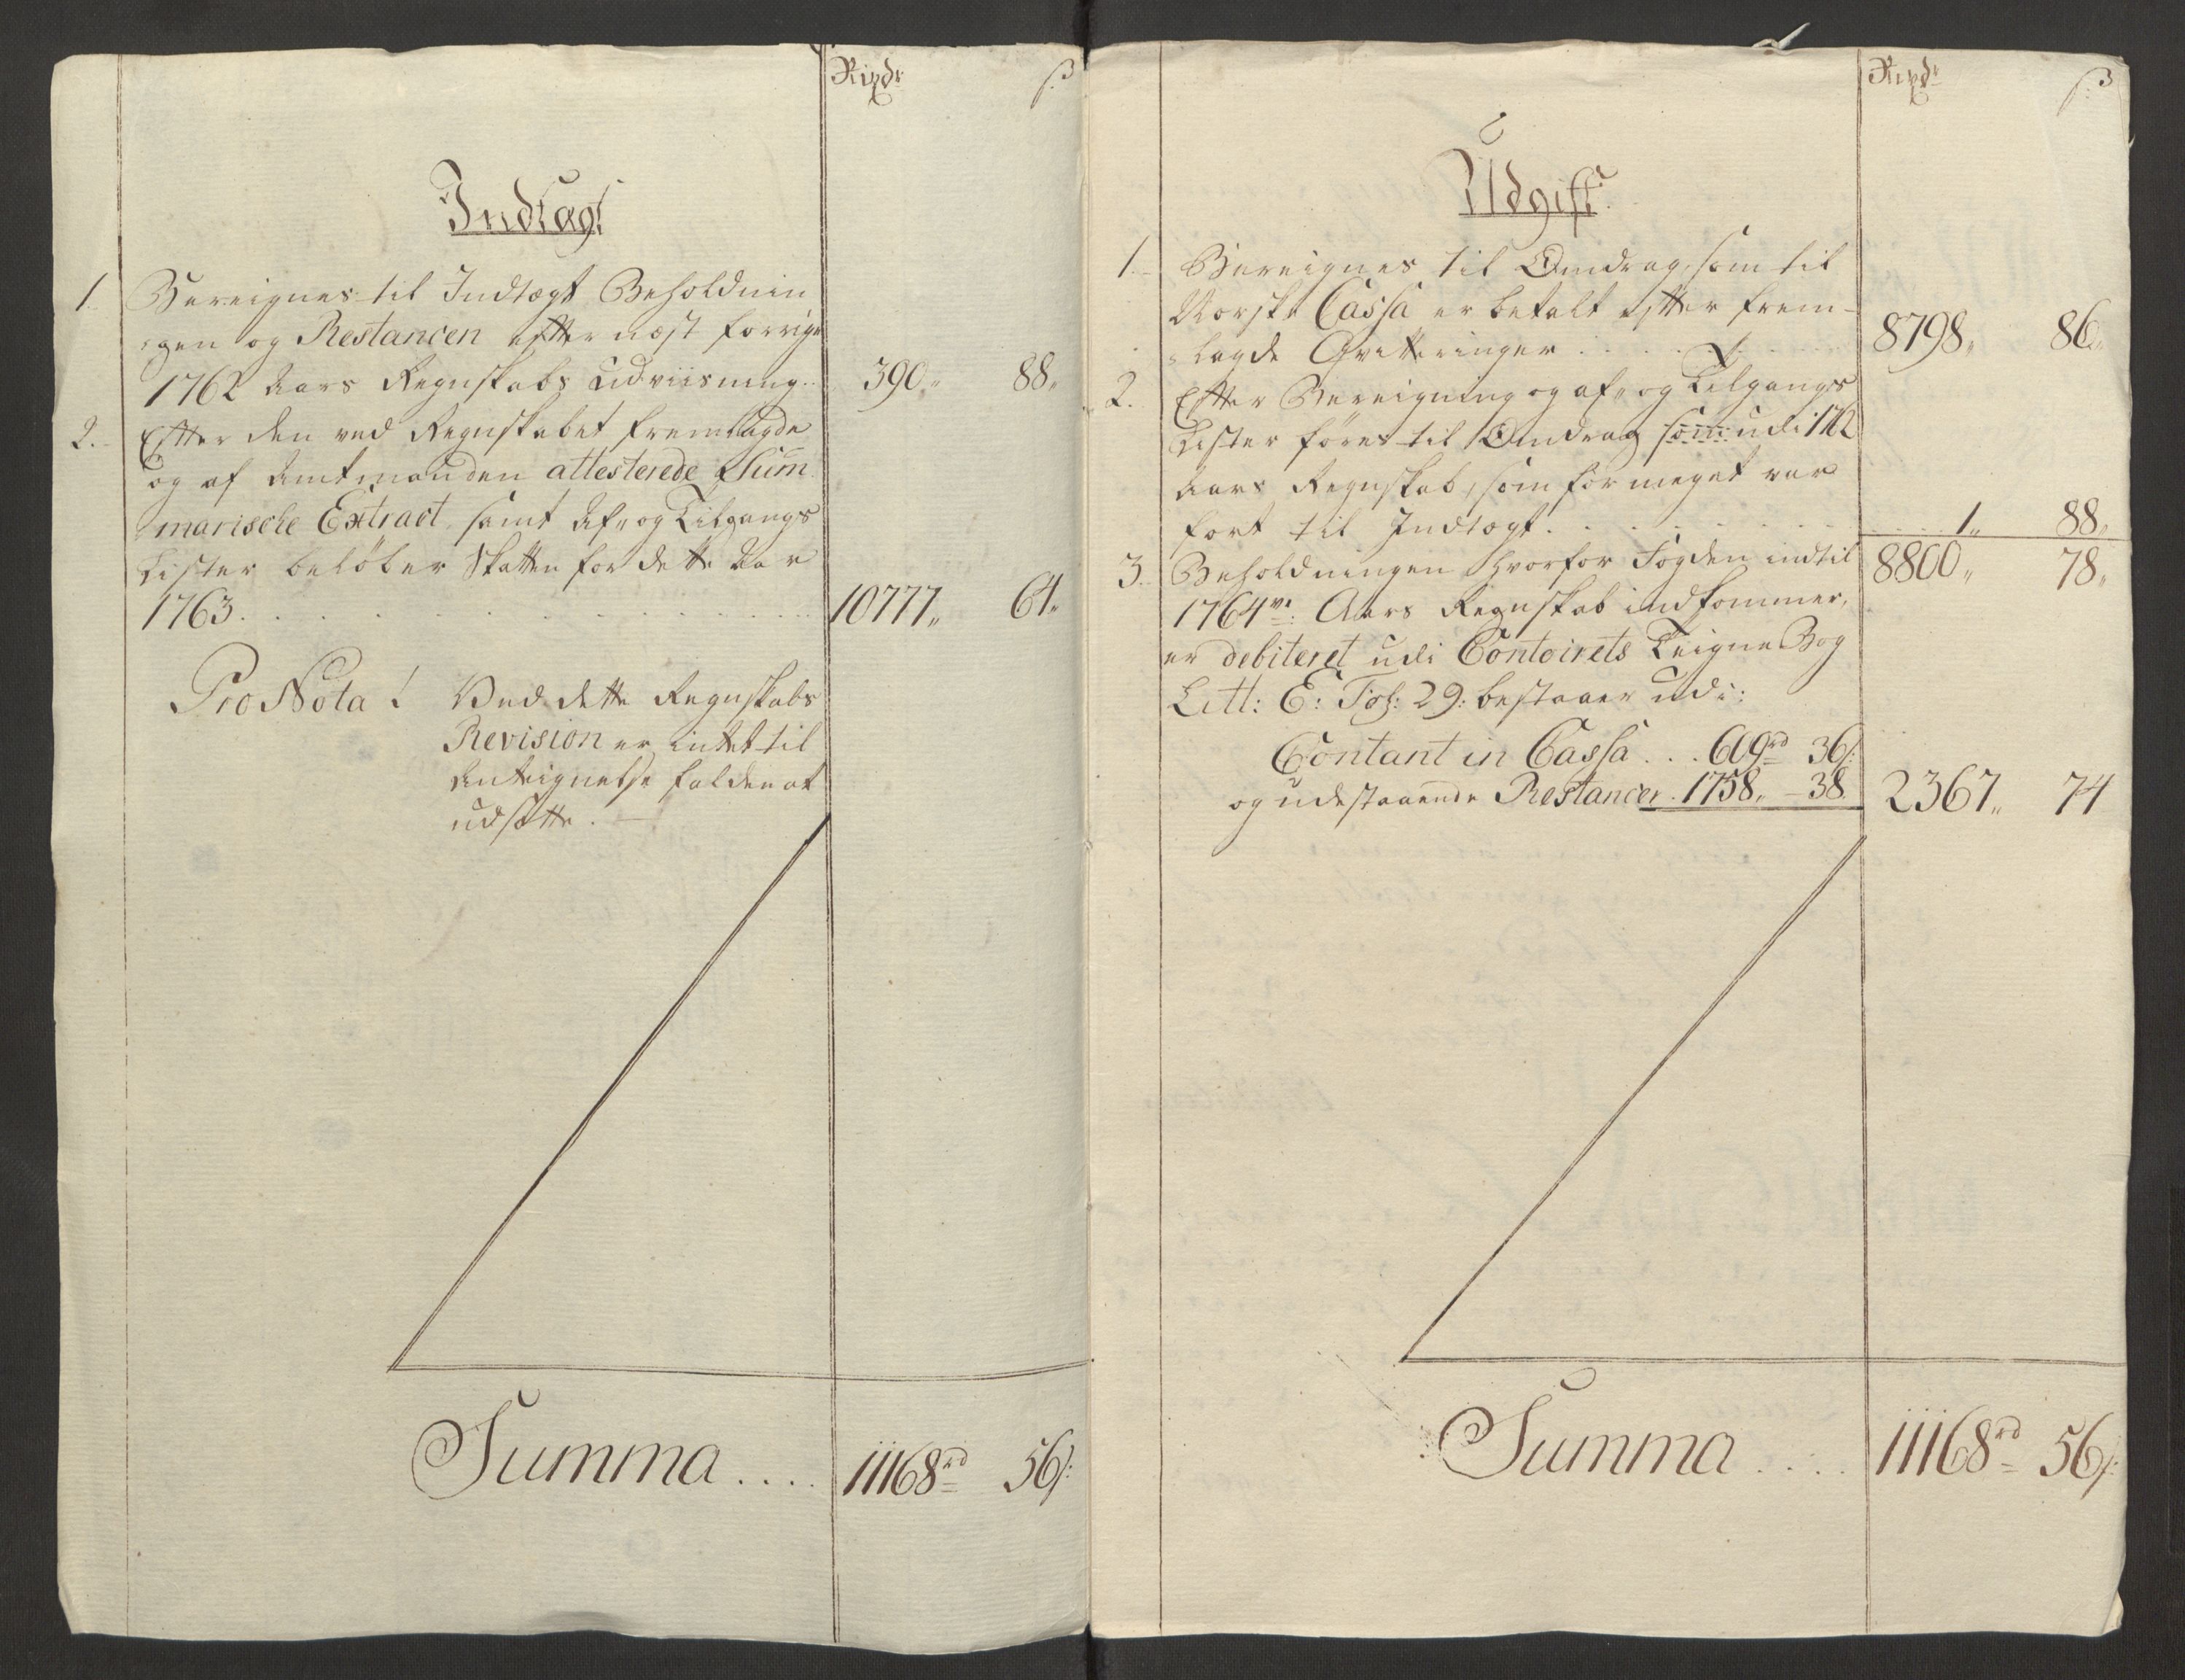 Rixdr ß
Indtægt
1. Bereignes til Indtægt Beholdnin
gen og Restancen efter næst forrige
1762 Aars Regnskabs Udviisning.. 390„ 88„
2. Efter den ved Regnskabet fremlagde
og af Amtmanden attesterede Sum
marische Extract, samt Af„ og Tilgangs
Lister beløber Skatten for dette Aar
1763. . . . . . . . . 10777„ 64„
Pro Nota! Ved dette Regnskabs
Revision er intet til
Anteignelse falden at
udsætte.
Summa.... 11168rd 56ß:
Rixdr ß
Udgift
1. Bereignes til Omdrag, som til
Norske Cassa er betalt efter frem-
lagde Qvitteringer . . . . . 8798„ 86„
2. Efter Bereigning og af„ og Tilgangs
Lister føres til Omdrag som udi 1762
Aars Regnskab, som for meget var
ført til Indtægt. . . . . . 1„ 88„
8800„ 78„
3. Beholdningen hvorfor Fogden indtil
1764ve: Aars Regnskab indkommer,
er debiteret udi Contoirets Teigne Bog
Litt: E: Fol: 29: bestaaer udi:
Contant in Cassa . . . 609rd 36ß:
og udestaaende Restancer. 1758„ — 38. 2367„ 74
Summa.... 11168rd 56ß: